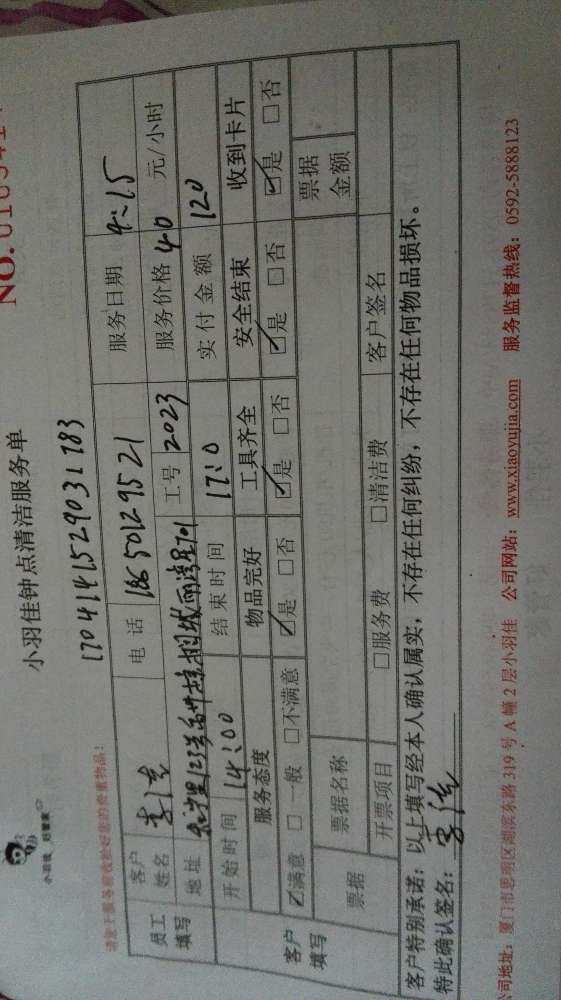 小羽佳 好管家
小羽佳钟点清洁服务单
1704141529031783
请您于服务前收拾好您的贵重物品!
员工填写 客户姓名 电话 18650129521 服务日期 4:15
地址 工号 2023 服务价格 40 元/小时
开始时间 14:00 结束时间 17:0 实付金额 120
客户填写 服务态度 物品完好 工具齐全 安全结束 收到卡片
☑满意 □一般 □不满意 ☑是 □否 ☑是 □否 ☑是 □否 ☑是 □否
票据 票据名称 票据金额
开票项目 □服务费 □清洁费 客户签名
客户特别承诺:以上填写经本人确认属实,不存在任何纠纷,不存在任何物品损坏。
特此确认签名:
司地址:厦门市思明区湖滨东路 319 号 A 幢 2 层小羽佳 公司网站:www.xiaoyujia.com 服务监督热线:0592-5888123